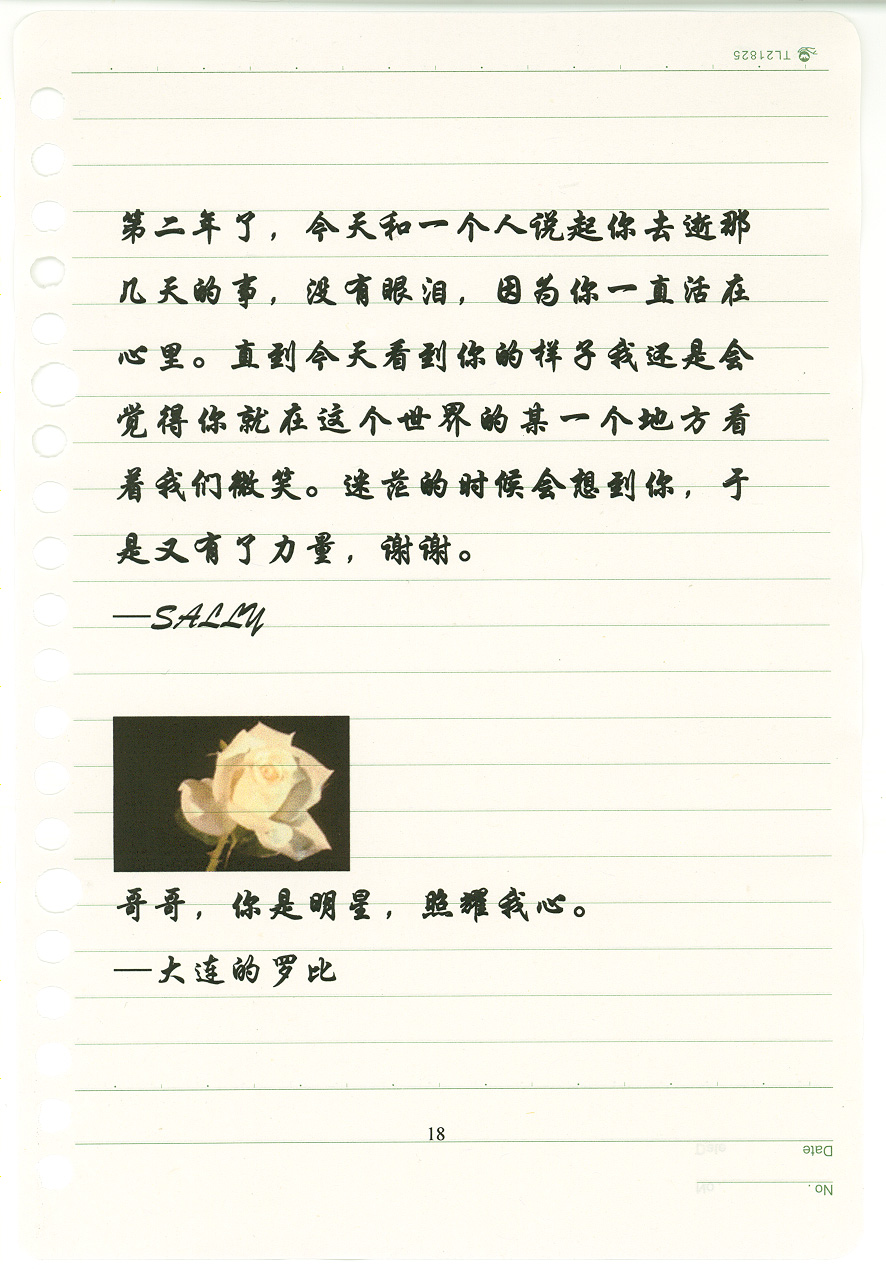 TL21825
第二年了，今天和一个人说起你去逝那
几天的事，没有眼泪，因为你一直活在
心里。直到今天看到你的样子我还是会
觉得你就在这个世界的某一个地方看
着我们微笑。迷茫的时候会想到你，于
是又有了力量，谢谢。
—SALLY
哥哥，你是明星，照耀我心。
—大连的罗比
18
Date
No.